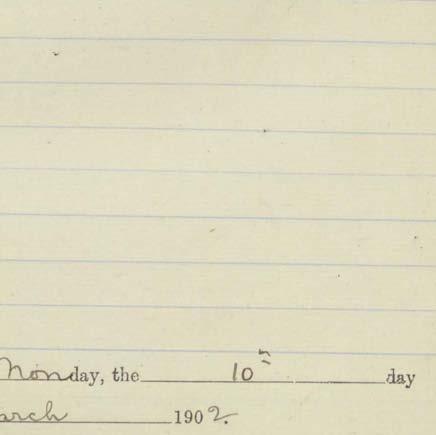 Monday, the 10th day
arch 1902.